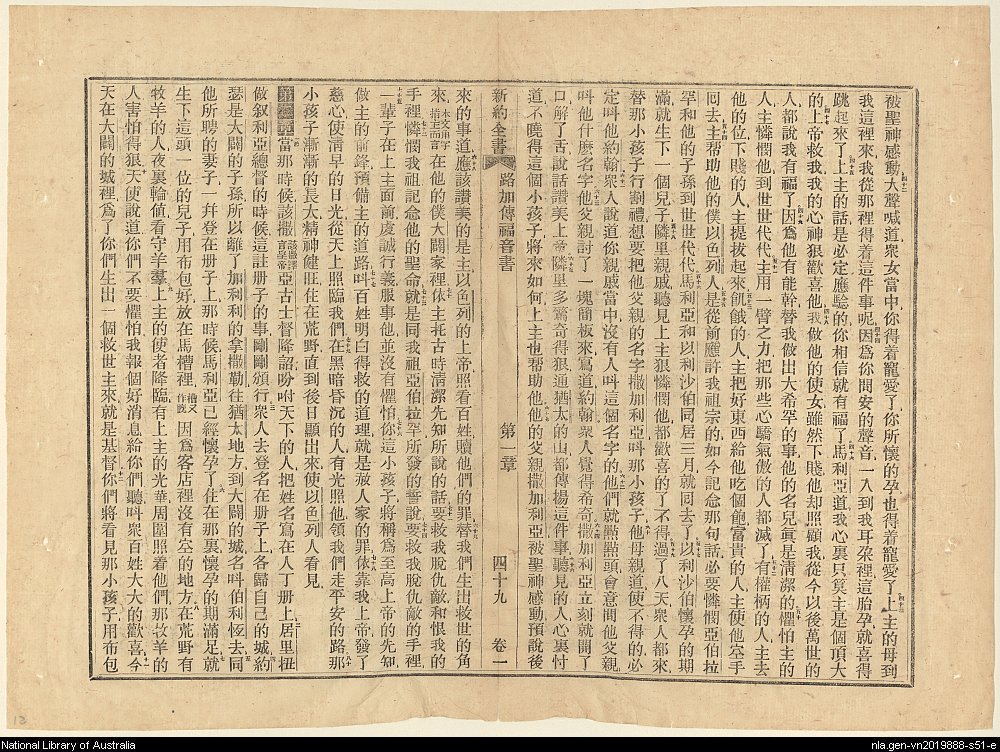 被聖神感動大聲喊道衆女當中你得着寵愛了你所懷的孕也得着寵愛了上主的母到
我這裡來我從那裡得着這件事呢因爲你問安的聲音一入到我耳朶裡這胎孕就喜得
跳起來了上主的話是必定應驗的你相信就有福了馬利亞道我心裏只算主是個頂大
的上帝救我我的心神狠歡喜他我做他的使女雖然下賤他却照顧我從今以後萬世的
人都說我有福了因爲他有能幹替我做出大希罕的事他的名兒眞是清潔的懼怕主的
人主憐憫他到世世代代主用一臂之力把那些心驕氣傲的人都滅了有權柄的人主去
他的位下賤的人主提拔起來飢餓的人主把好東西給他吃個飽富貴的人主使他空手
囘去主帮助他的僕以色列人是從前應許我祖宗的如今記念那句話必要憐憫亞伯拉
罕和他的子孫到世世代代馬利亞和以利沙伯同居三月就囘去了以利沙伯懷孕的期
滿就生下一個兒子隣里親戚聽見上主狠憐憫他都歡喜的了不得過了八天衆人都來
替那小孩子行割禮想要把他父親的名字撒加利亞呌那小孩子他母親道使不得的必
定呌他約翰衆人說道你親戚當中沒有人呌這個名字的他們就點點頭會意問他父親
呌他什麽名字他父親討了一塊簡板來寫道約翰衆人覺得希奇撒加利亞立刻就開了
口解了舌說話讚美上帝隣里多驚奇得狠通猶太的山都傳揚這件事聽見的人心裏忖
道不曉得這個小孩子將來如何上主也帮助他他的父親撒加利亞被聖神感動預說後
新約全書 路加傳福音書 第一章 四十九 卷一
來的事道應該讚美的是主以色列的上帝照看百姓贖他們的罪替我們生出救世的角
來在他的僕大闢家裡依主托古時清潔先知所說的話要救我脫仇敵和恨我的
手裡憐憫我祖記念他的聖命就是同我祖亞伯拉罕所發的誓說要救我脫仇敵的手裡
一輩子在上主面前虔誠行義服事他並沒有懼怕你這小孩子將稱爲至高上帝的先知
做主的前鋒預備主的道路呌百姓明白得救的道理就是赦人家的罪依靠我上帝發了
慈心使清早的日光從天上照臨我們在黑暗昏沉的人有光照他領我們走平安的路那
小孩子漸漸的長大精神健旺住在荒野直到後日顯出來使以色列人看見
第二章當那時候該撒亞古士督降詔吩咐天下的人把姓名寫在人丁册上居里扭
做叙利亞總督的時候這註册子的事剛剛頒行衆人去登名在册子上各歸自己的城約
瑟是大闢的子孫所以離了加利利的拿撒勒往猶太地方到大闢的城名呌伯利恆去同
他所聘的妻子一幷登在册子上那時候馬利亞已經懷孕了住在那裏懷孕的期滿足就
生下這頭一位的兒子用布包好放在馬槽裡槽又作廄因爲客店裡沒有空的地方在荒野有
牧羊的人夜裏輪值看守羊羣上主的使者降臨有上主的光華周圍照着他們那牧羊的
人害怕得狠天使說道你們不要懼怕我報個好消息給你們聽呌衆百姓大大的歡喜今
天在大闢的城裡爲了你們生出一個救世主來就是基督你們將看見那小孩子用布包
National Library of Australia
nla.gen-vn2019888-s51-e